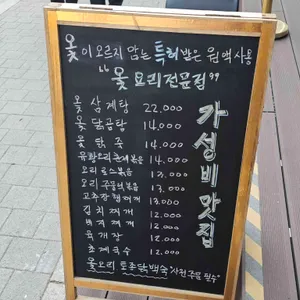 옻이 오르지 않는 특허받은 원액사용
"옻 요리전문점"
옻 삼계탕 22.000
옻 닭곰탕 14.000
옻 닭죽 14.000
유황오리훈제볶음 14.000
오리로스볶음 13.000
오리주물럭볶음 13.000
고추장찜닭 13.000
김치찌개 12.000
비지찌개 12.000
육개장 12.000
초계국수 12.000
가성비맛집
옻오리 토종닭백숙 "사전주문 필수"